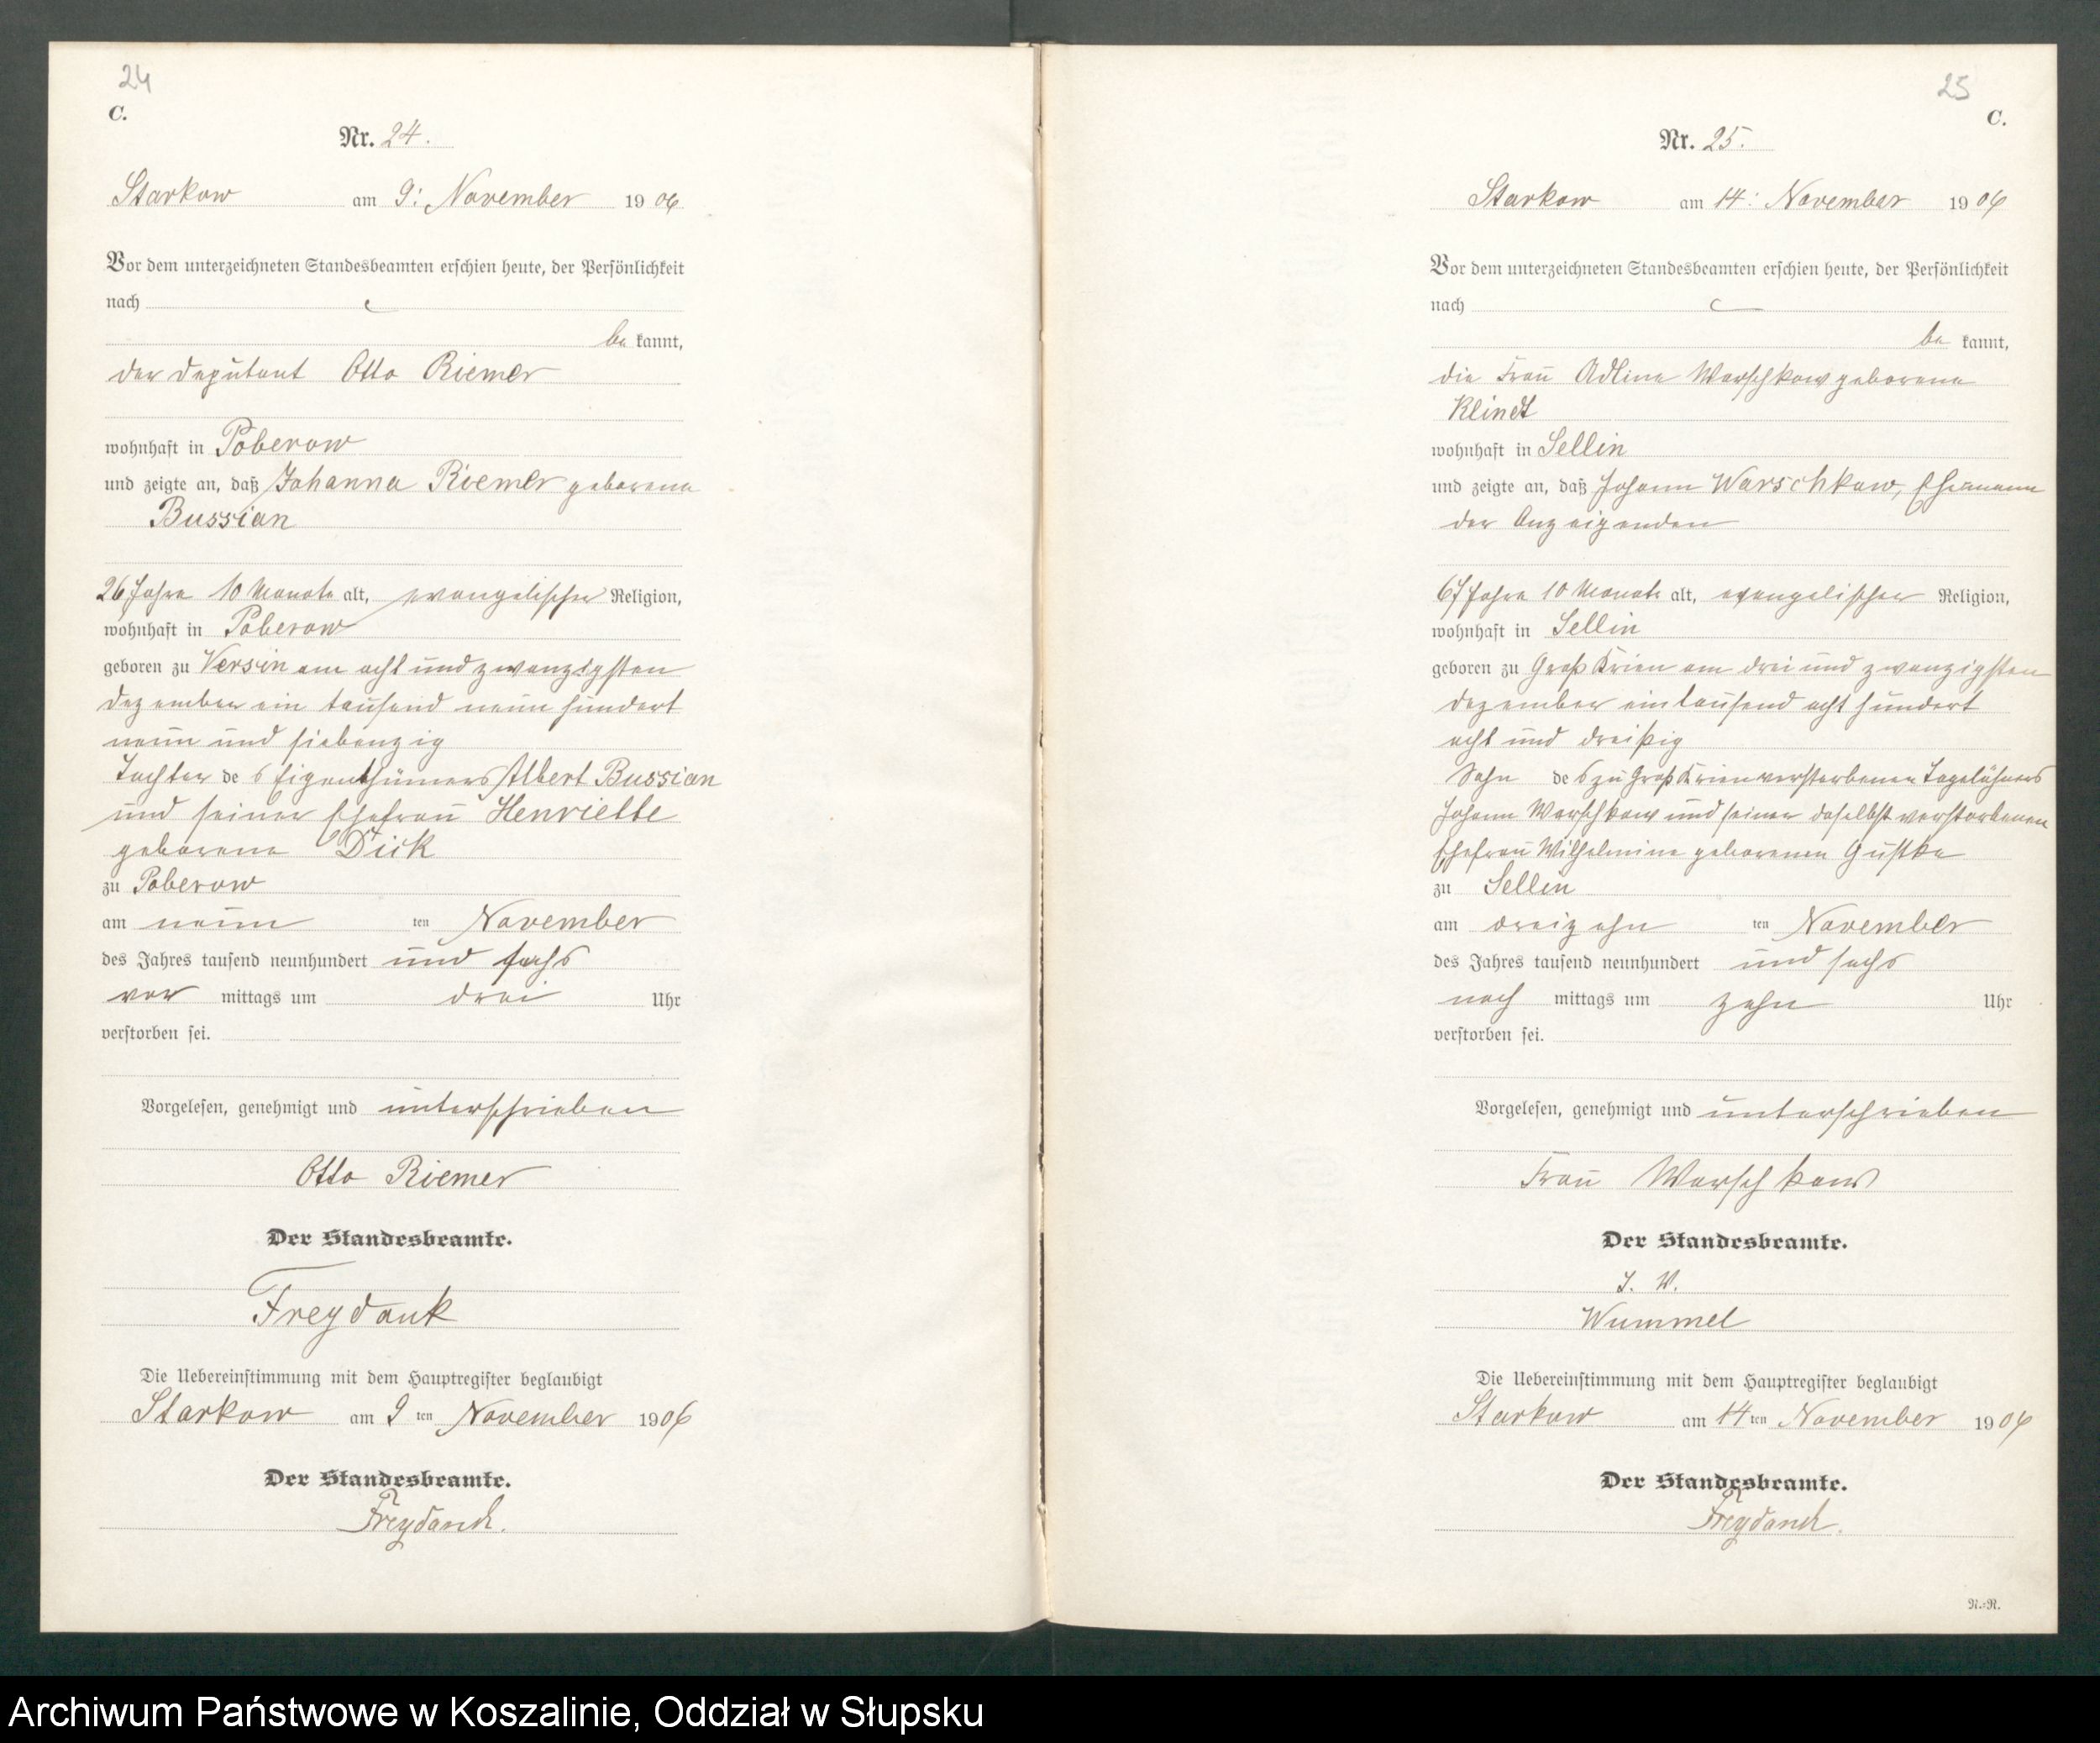 24
C.
Nr. 24.
Starkow am 9: November 1906
Vor dem unterzeichneten Standesbeamten erschien heute, der Persönlichkeit
nach
be kannt,
der Deputant Otto Riemer
wohnhaft in Poberow
und zeigte an, daß Johanna Riemer geborene
Bussian
26 Jahre 10 Monate alt, evangelischer Religion,
wohnhaft in Poberow
geboren zu Versin am acht und zwanzigsten
Dezember ein tausend neun hundert
neun und siebenzig
Tochter des Eigenthümers Albert Bussian
und seiner Ehefrau Henriette
geborene Dick
zu Poberow
am neun ten November
des Jahres tausend neunhundert und sechs
vor mittags um drei Uhr
verstorben sei.
Vorgelesen, genehmigt und unterschrieben
Otto Riemer
Der Standesbeamte.
Freydank
Die Uebereinstimmung mit dem Hauptregister beglaubigt
Starkow am 9 ten November 1906
Der Standesbeamte.
Freydanck.
25
C.
Nr. 25.
Starkow am 14: November 1906
Vor dem unterzeichneten Standesbeamten erschien heute, der Persönlichkeit
nach
be kannt,
die Frau Adline Warschkow geborene
Klindt
wohnhaft in Sellin
und zeigte an, daß Johann Warschkow, Ehemann
der Anzeigenden
67 Jahre 10 Monate alt, evangelischer Religion,
wohnhaft in Sellin
geboren zu Groß Krien am drei und zwanzigsten
Dezember eintausend acht hundert
acht und dreißig
Sohn des zu Groß Krien verstorbenen Tagelöhners
Johann Warschkow und seiner daselbst verstorbenen
Ehefrau Wilhelmine geborenen Gustke
zu Sellin
am dreizehn ten November
des Jahres tausend neunhundert und sechs
nach mittags um zehn Uhr
verstorben sei.
Vorgelesen, genehmigt und unterschrieben
Frau Warschkow
Der Standesbeamte.
I. V.
Wummel
Die Uebereinstimmung mit dem Hauptregister beglaubigt
Starkow am 14 ten November 1906
Der Standesbeamte.
Freydanck.
N.=N.
Archiwum Państwowe w Koszalinie, Oddział w Słupsku